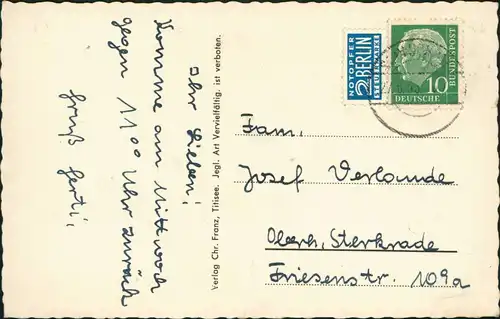 Ihr Lieben!
Komme am Mittwoch
gegen 11⁰⁰ Uhr zurück
Gruß Gerti,
Verlag Chr. Franz, Titisee. Jegl. Art Vervielfältig. ist verboten.
NOTOPFER
2 BERLIN
STEUERMARKE
10
DEUTSCHE
BUNDESPOST
Fam.
Josef Verlande
Oberh. Sterkrade
Friesenstr. 109a